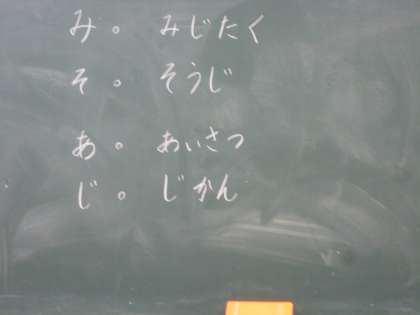 み。 みじたく
そ。 そうじ
あ。 あいさつ
じ。 じかん